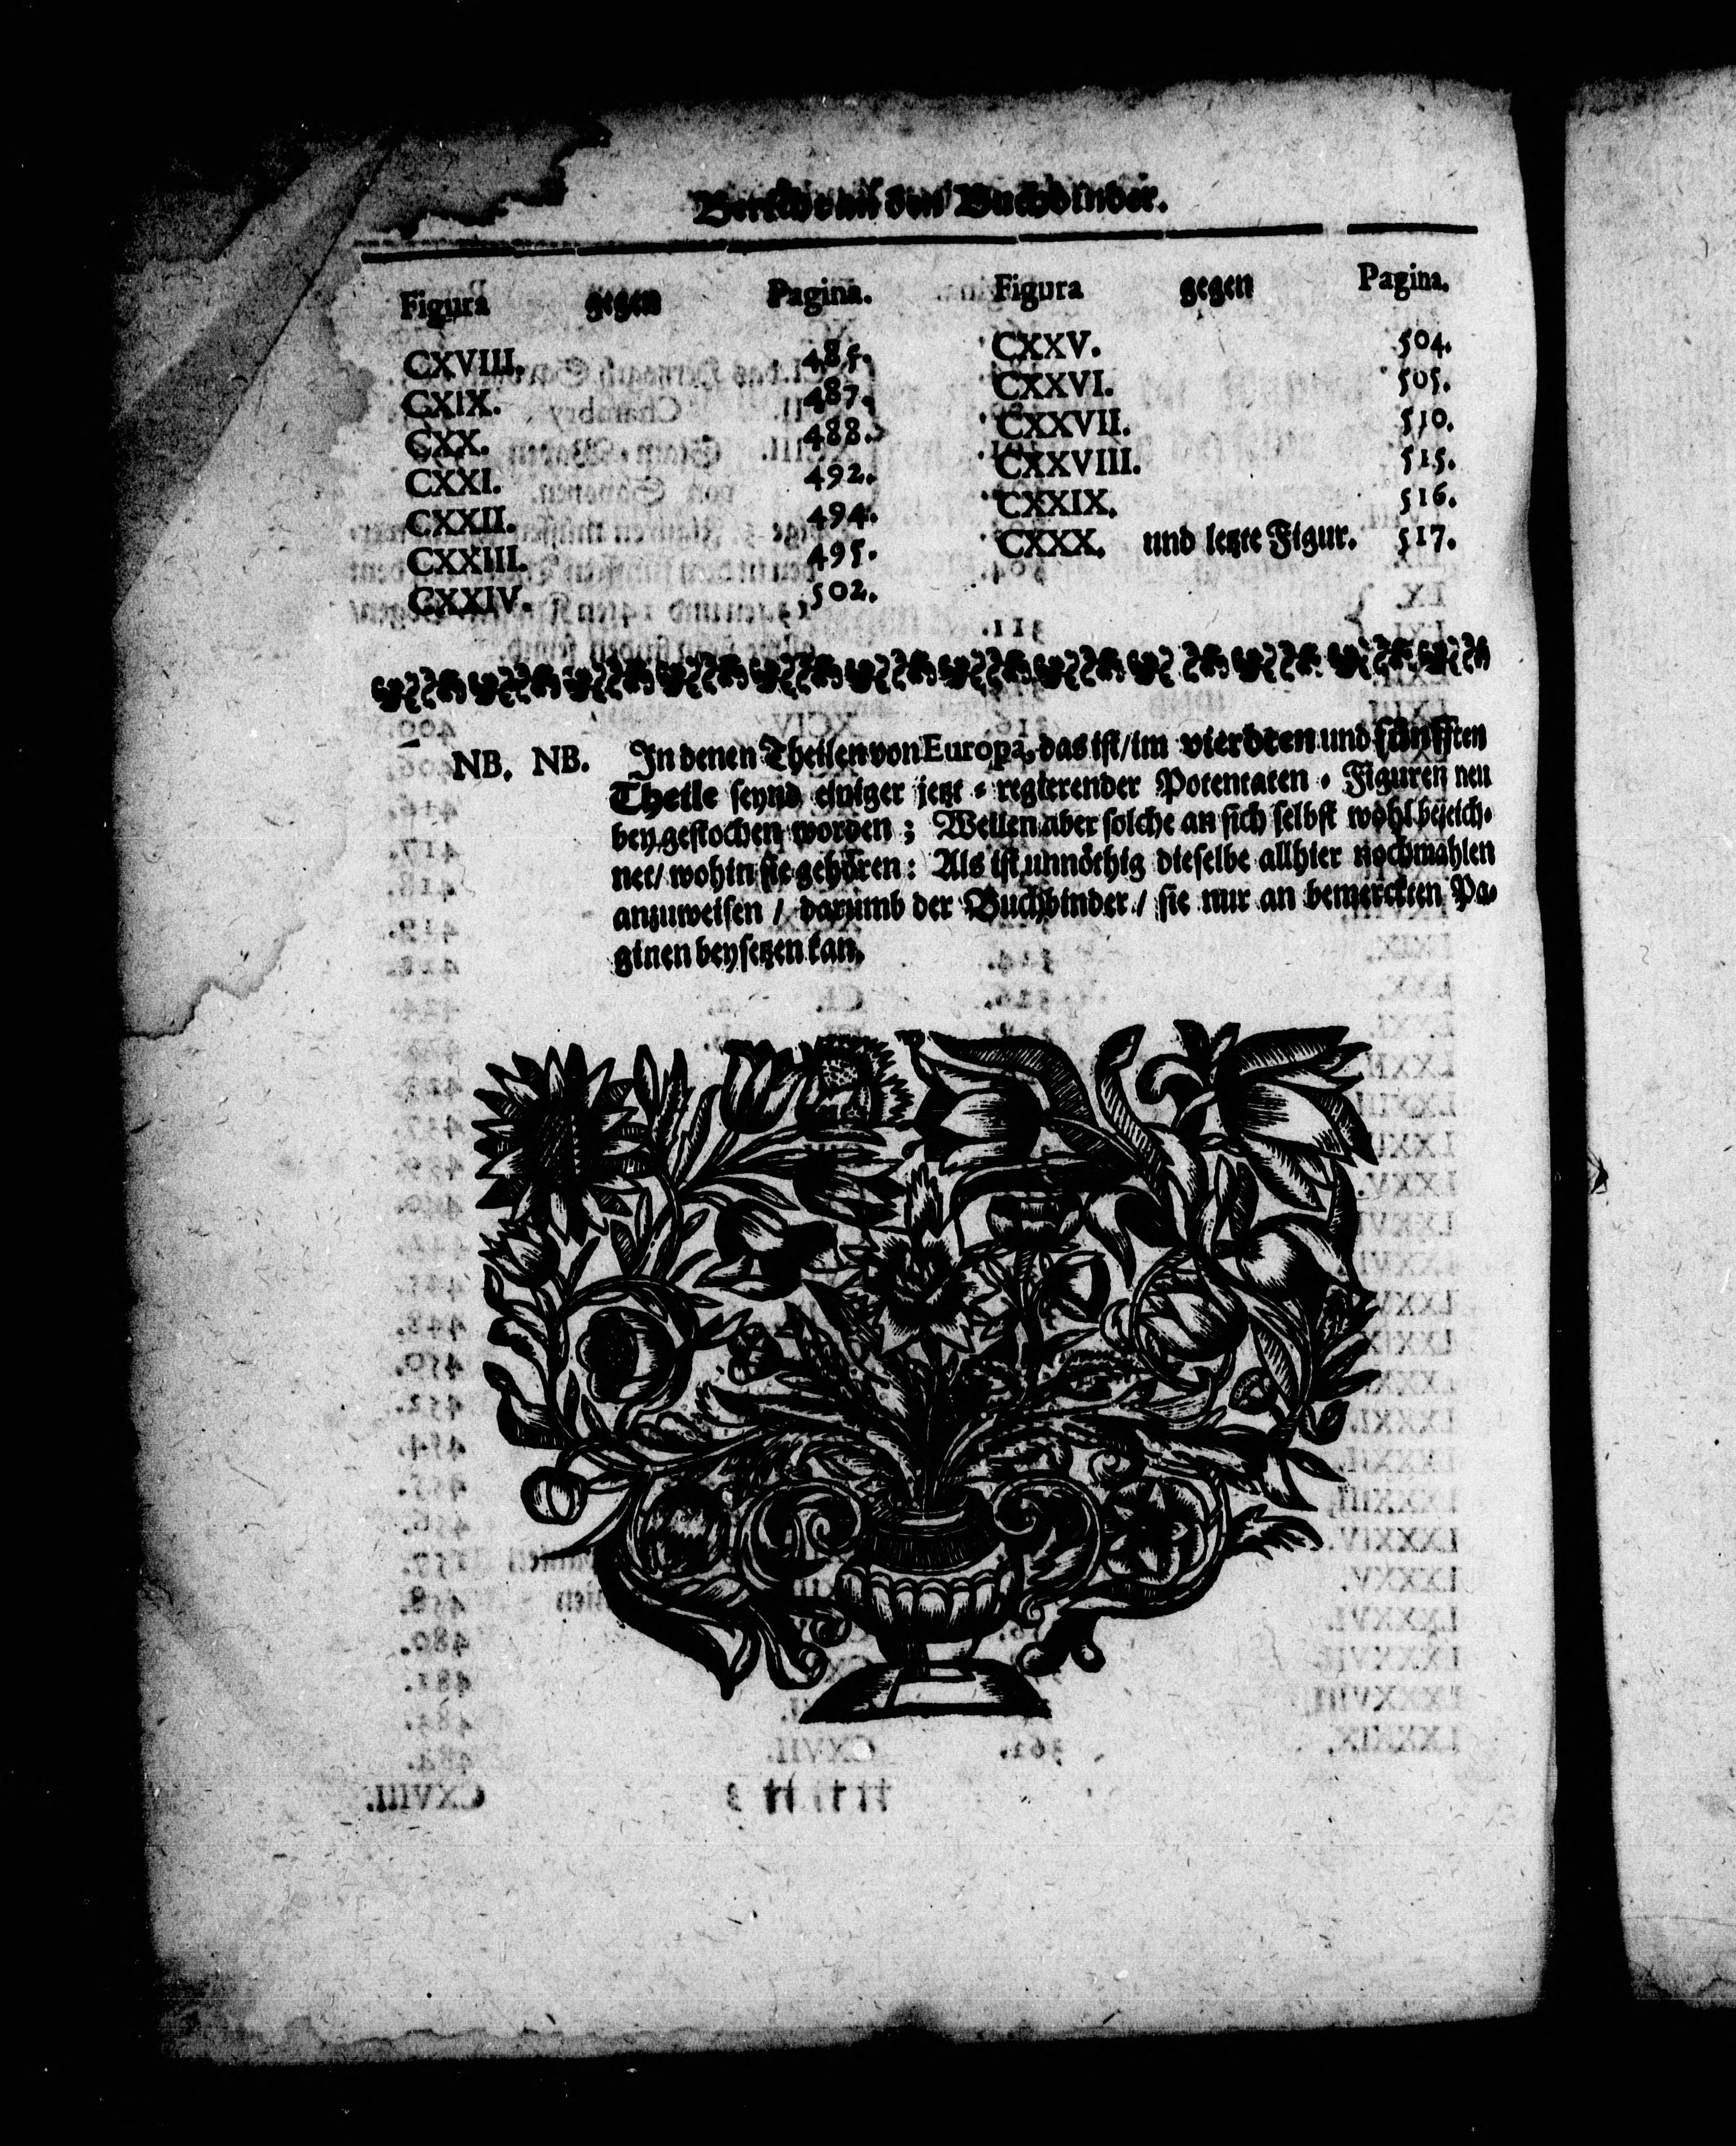 Bericht an den Buchbinder.
Figura gegen Pagina.
CXVIII. 485.
CXIX. 487.
CXX. 488.
CXXI. 492.
CXXII. 494.
CXXIII. 495.
CXXIV. 502.
Figura gegen Pagina.
CXXV. 504.
CXXVI. 505.
CXXVII. 510.
CXXVIII. 515.
CXXIX. 516.
CXXX. und letzte Figur. 517.
NB. NB. In denen Theilen von Europa, das ist/im vierdten und fünfften
Theile seynd einiger jetzt-regierender Potentaten-Figuren neu
beygestochen worden; Weilen aber solche an sich selbst wohl bezeich-
net/ wohin sie gehören: Als ist unnöthig dieselbe allhier nochmahlen
anzuweisen / darumb der Buchbinder / sie nur an bemerckten Pa-
ginen beysetzen kan.